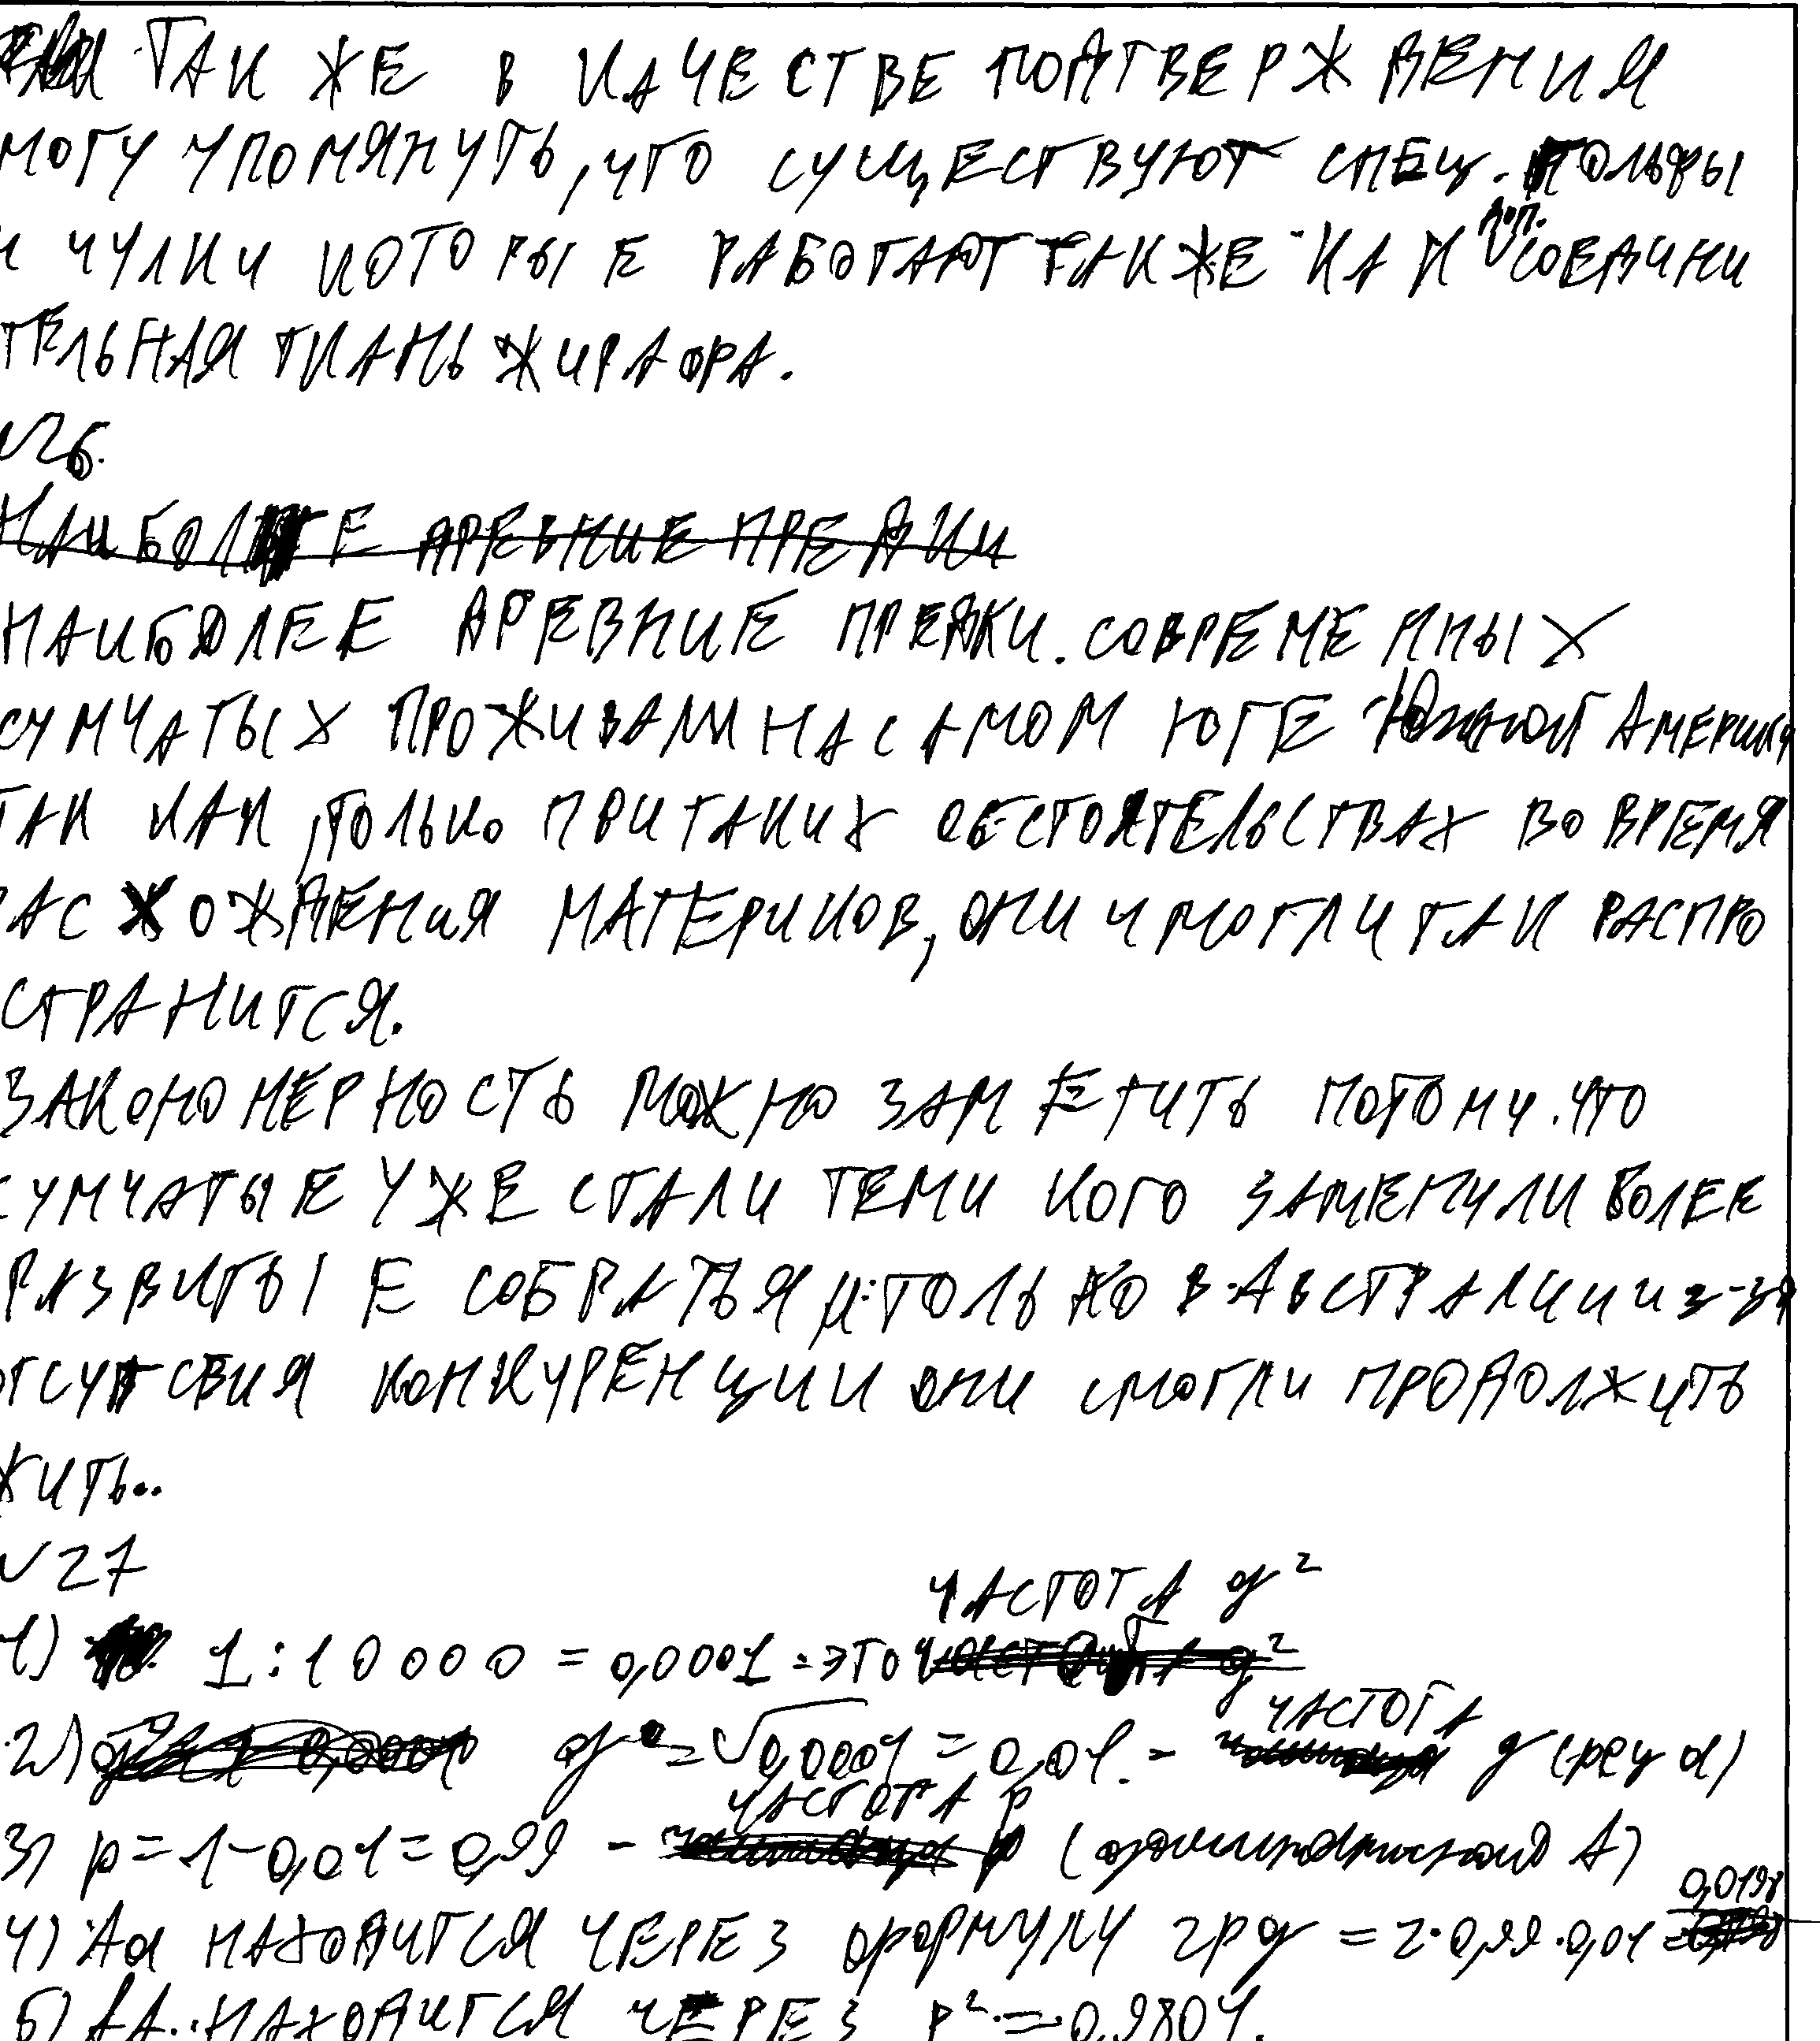 ТАК ЖЕ В КАЧЕСТВЕ ПОДТВЕРЖДЕНИЯ
МОГУ УПОМЯНУТЬ, ЧТО СУЩЕСТВУЮТ СПЕЦ. ГОЛЬФЫ
И ЧУЛКИ КОТОРЫЕ РАБОТАЮТ ТАКЖЕ КАК ДОП. СОЕДИНИ
ТЕЛЬНАЯ ТКАНЬ ЖИРАФА.
№26.
НАИБОЛЕЕ ДРЕВНИЕ ПРЕДКИ
НАИБОЛЕЕ ДРЕВНИЕ ПРЕДКИ. СОВРЕМЕННЫХ
СУМЧАТЫХ ПРОЖИВАЛИ НА САМОМ ЮГЕ Южной АМЕРИКИ
ТАК КАК, ТОЛЬКО ПРИ ТАКИХ ОБСТОЯТЕЛЬСТВАХ ВО ВРЕМЯ
РАСХОЖДЕНИЯ МАТЕРИКОВ, ОНИ И МОГЛИ ТАК РАСПРО
СТРАНИТСЯ.
ЗАКОНОМЕРНОСТЬ МОЖНО ЗАМЕТИТЬ ПОТОМУ. ЧТО
СУМЧАТЫЕ УЖЕ СТАЛИ ТЕМИ КОГО ЗАМЕНИЛИ БОЛЕЕ
РАЗВИТЫЕ СОБРАТЬЯ И ТОЛЬКО В АВСТРАЛИИ ИЗ-ЗА
ОТСУТСВИЯ КОНКУРЕНЦИИ ОНИ СМОГЛИ ПРОДОЛЖИТЬ
ЖИТЬ..
№27
1) 1:10000 = 0,0001 - ЭТО ЧАСТОТА q²
2) q = √0,0001 = 0,01. - ЧАСТОТА q (рец a)
3) p = 1-0,01 = 0,99 - ЧАСТОТА p (доминантного A)
4) Aa НАХОДИТСЯ ЧЕРЕЗ ФОРМУЛУ 2pq = 2·0,99·0,01 = 0,0198
5) AA НАХОДИТСЯ ЧЕРЕЗ P² = 0,9801.